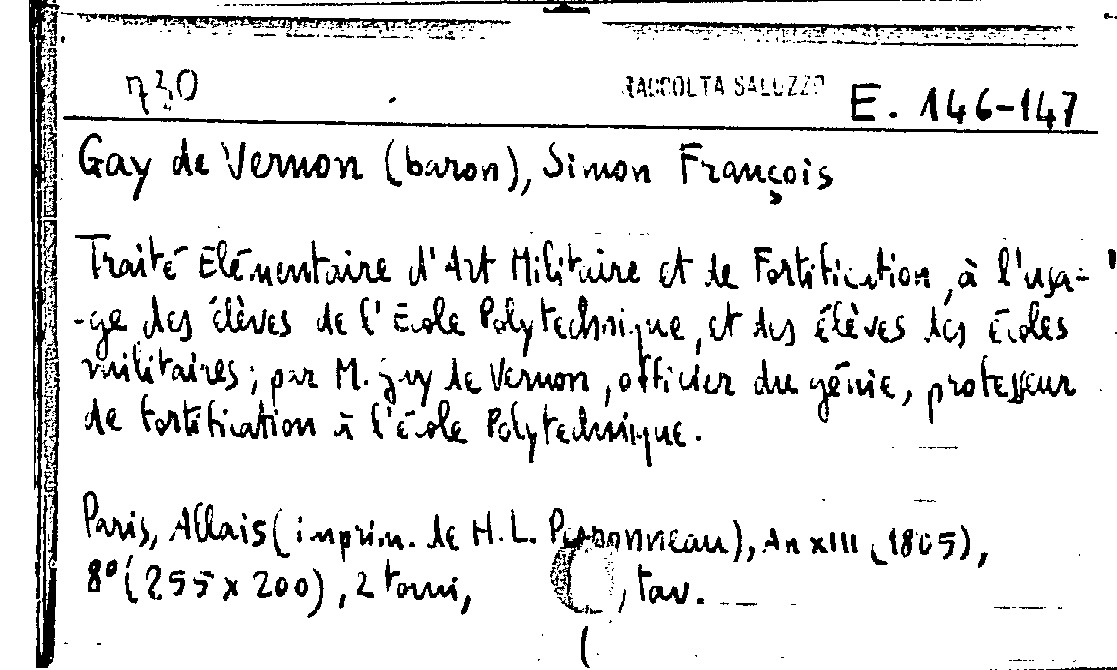 730 RACCOLTA SALUZZO E. 146-147
Gay de Vernon (baron), Simon François
Traité Elémentaire d'Art Militaire et de Fortification, à l'usa-
-ge des élèves de l'École Polytechnique, et des élèves des écoles
militaires; par M. Gay de Vernon, officier du génie, professeur
de fortification à l'école Polytechnique.
Paris, Allais (imprim. de H.L. Perronneau), An XIII (1805),
8° (255 x 200), 2 tomi, , tav.